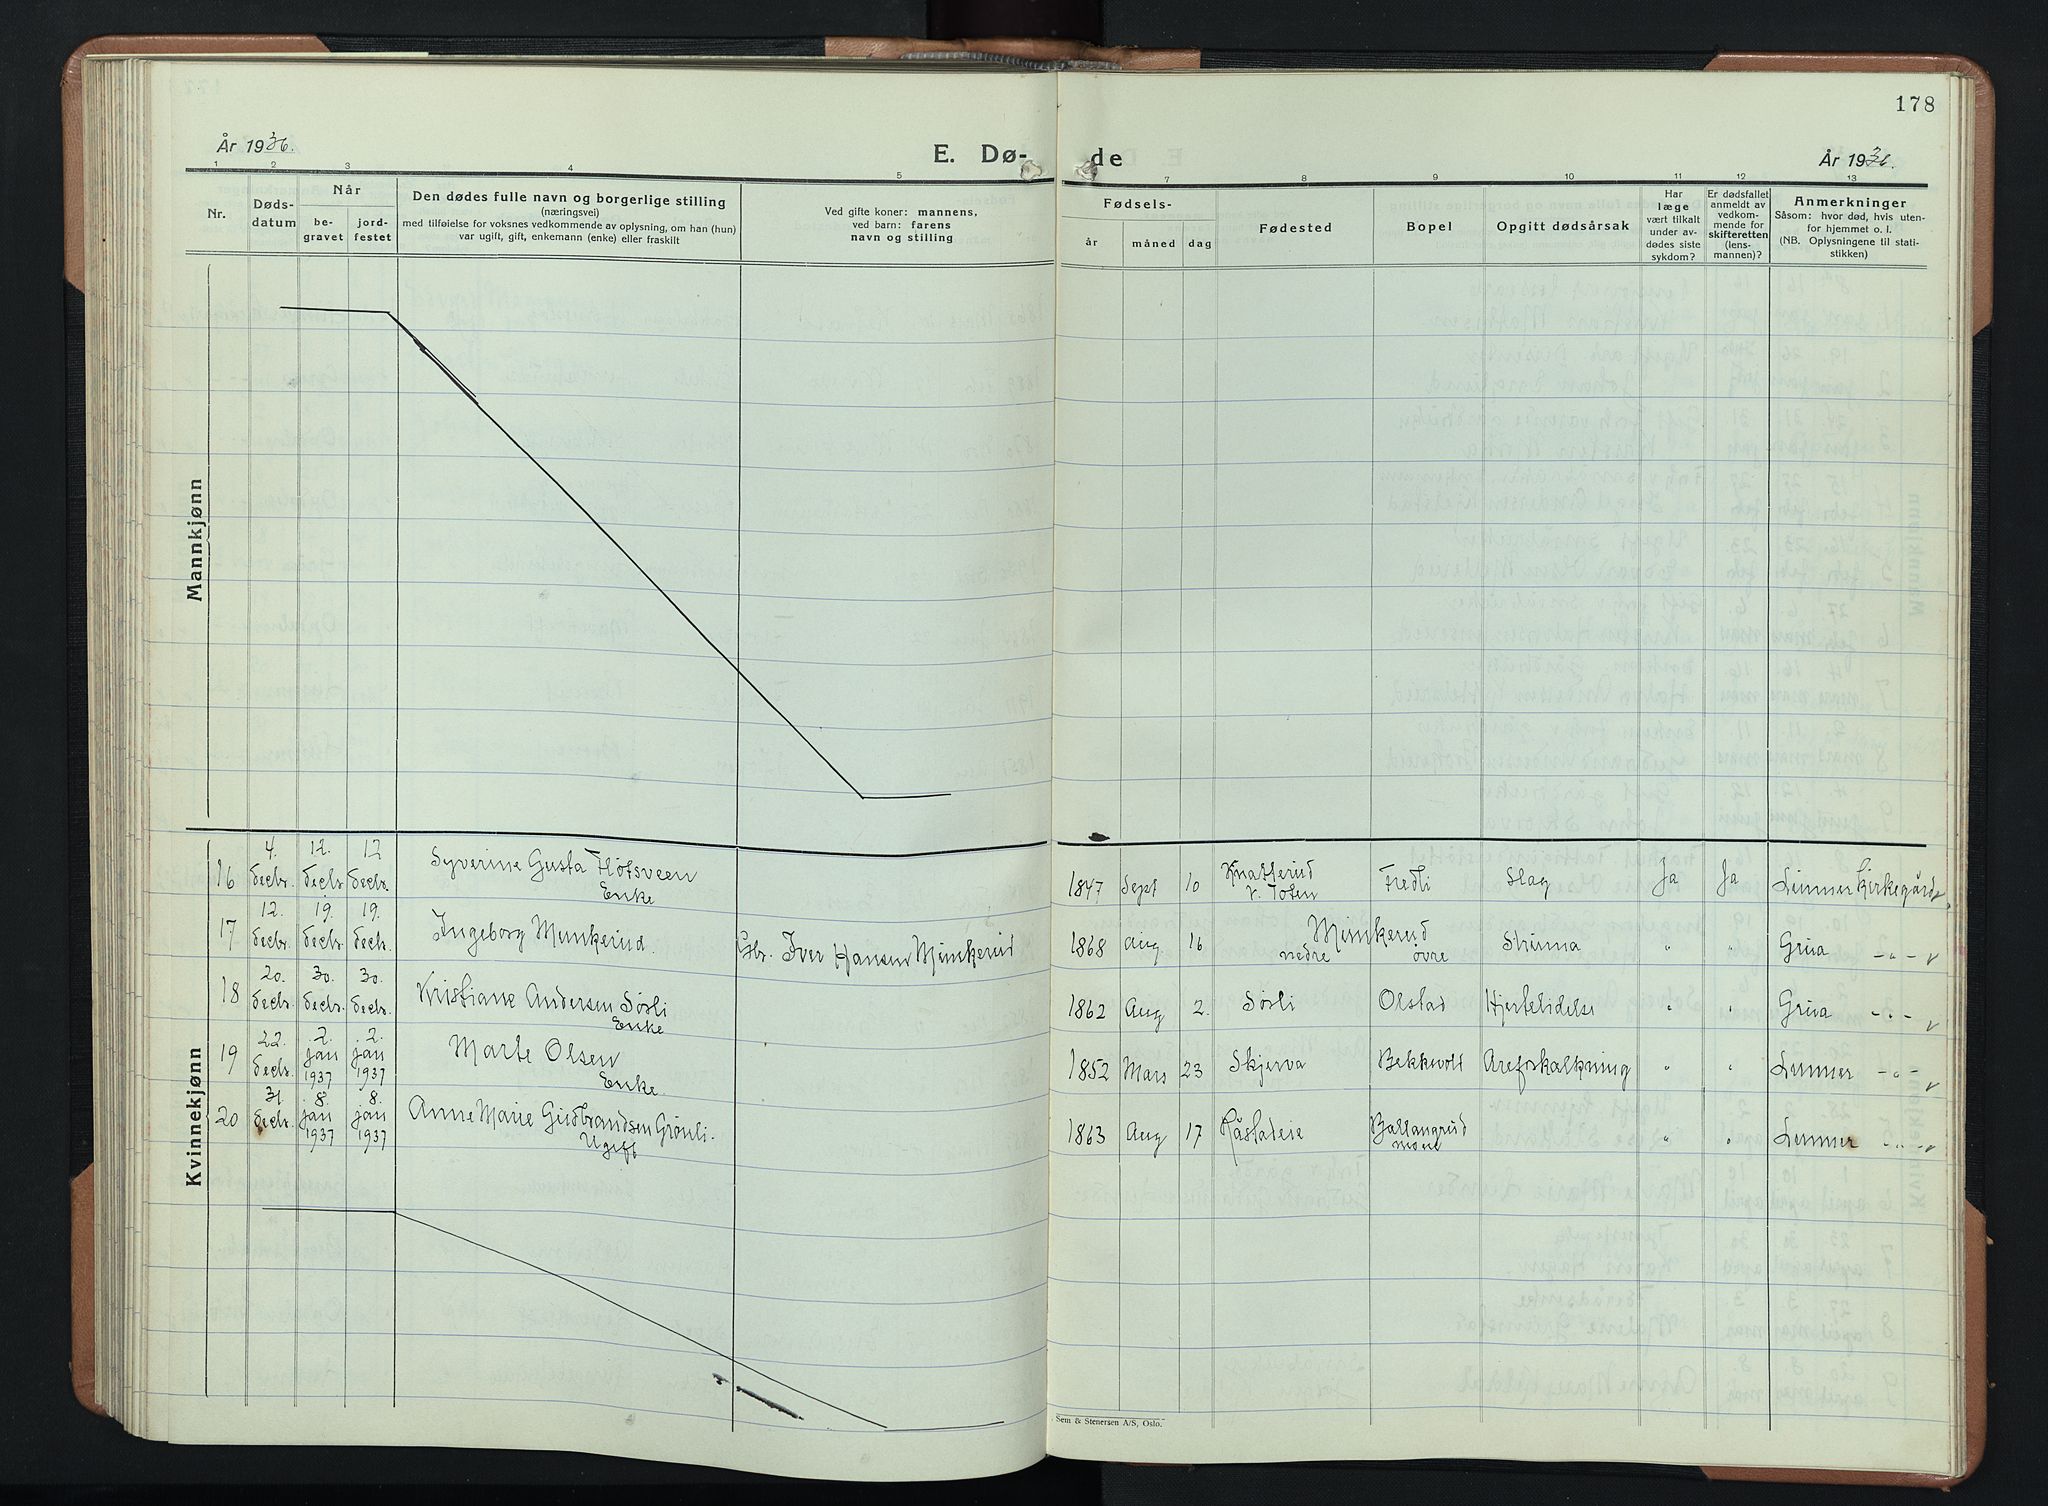 178
År 1936.
E. Dø-
de
År 1936.
1 2 3 4 5
7 8 9 10 11 12 13
Nr.
Døds-
datum
Når
be-
gravet
jord-
festet
Den dødes fulle navn og borgerlige stilling
(næringsvei)
med tilføielse for voksnes vedkommende av oplysning, om han (hun)
var ugift, gift, enkemann (enke) eller fraskilt
Ved gifte koner: mannens,
ved barn: farens
navn og stilling
Fødsels-
år måned dag
Fødested
Bopel
Opgitt dødsårsak
Har
læge
vært tilkalt
under av-
dødes siste
sykdom?
Er dødsfallet
anmeldt av
vedkom-
mende for
skifteretten
(lens-
mannen)?
Anmerkninger
Såsom: hvor død, hvis uten-
for hjemmet o. l.
(NB. Oplysningene til stati-
stikken)
Mannkjønn
Kvinnekjønn
16 4. decbr. 12. decbr. 12 decbr. Syverine Gusta Flotsveen
Enke
1847 Sept 10 Knatterud
v. Toten
Fredli Slag Ja Ja Lunner Kirkegård
17 12. decbr. 19. decbr. 19. decbr. Ingeborg Munkerud. Gbr. Iver Hansen Munkerud
1868 Aug 16 Munkerud
nedre øvre
" " Grua - " -
18 20. decbr. 30. decbr. 30. decbr. Kristiane Andersen Sørli
Enke
1862 Aug 2. Sørli Olstad Hjertelidelse " " Grua - " -
19 22. decbr. 2. jan 1937 2. jan 1937 Marte Olsen
Enke
1852 Mars 23 Skjerva Bekkevold Areforkalkning " " Lunner - " -
20 31. decbr. 8. jan 1937 8. jan 1937 Anne Marie Gudbrandsen Grønli.
Ugift
1863 Aug 17 Råstadeie Ballangrud
moen
" " Lunner - " -
Sem & Stenersen A/S, Oslo.